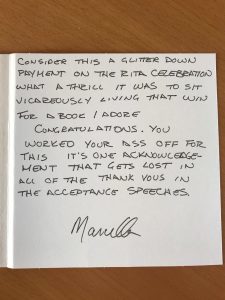 CONSIDER THIS A GLITTER DOWN
PAYMENT ON THE RITA CELEBRATION
WHAT A THRILL IT WAS TO SIT
VICAREOUSLY LIVING THAT WIN
FOR A BOOK I ADORE
CONGRATULATIONS. YOU
WORKED YOUR ASS OFF FOR
THIS IT'S ONE ACKNOWLEDGE-
MENT THAT GETS LOST IN
ALL OF THE THANK YOUS IN
THE ACCEPTANCE SPEECHES.